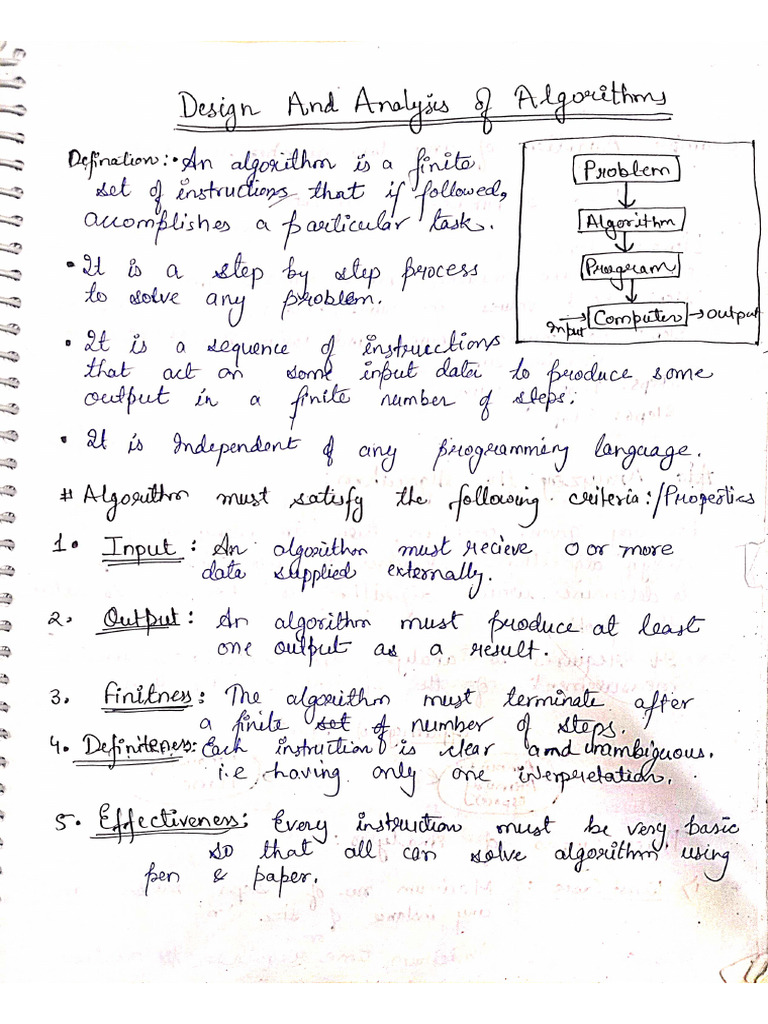 Design And Analysis of Algorithms
Defination: • An algorithm is a finite
set of instructions that if followed,
accomplishes a particular task.
• It is a step by step process
to solve any problem.
Problem
Algorithm
Program
Input → Computer → Output
• It is a sequence of instructions
that act on some input data to produce some
output in a finite number of steps.
• It is Independent of any programming language.
# Algorithm must satisfy the following criteria:/Properties
1. Input: An algorithm must recieve 0 or more
data supplied externally.
2. Output: An algorithm must produce at least
one output as a result.
3. Finitness: The algorithm must terminate after
a finite set of number of steps.
4. Definiteness: Each instruction is clear and unambiguous.
i.e having only one interpretation.
5. Effectiveness: Every instruction must be very basic
so that all can solve algorithm using
pen & paper.